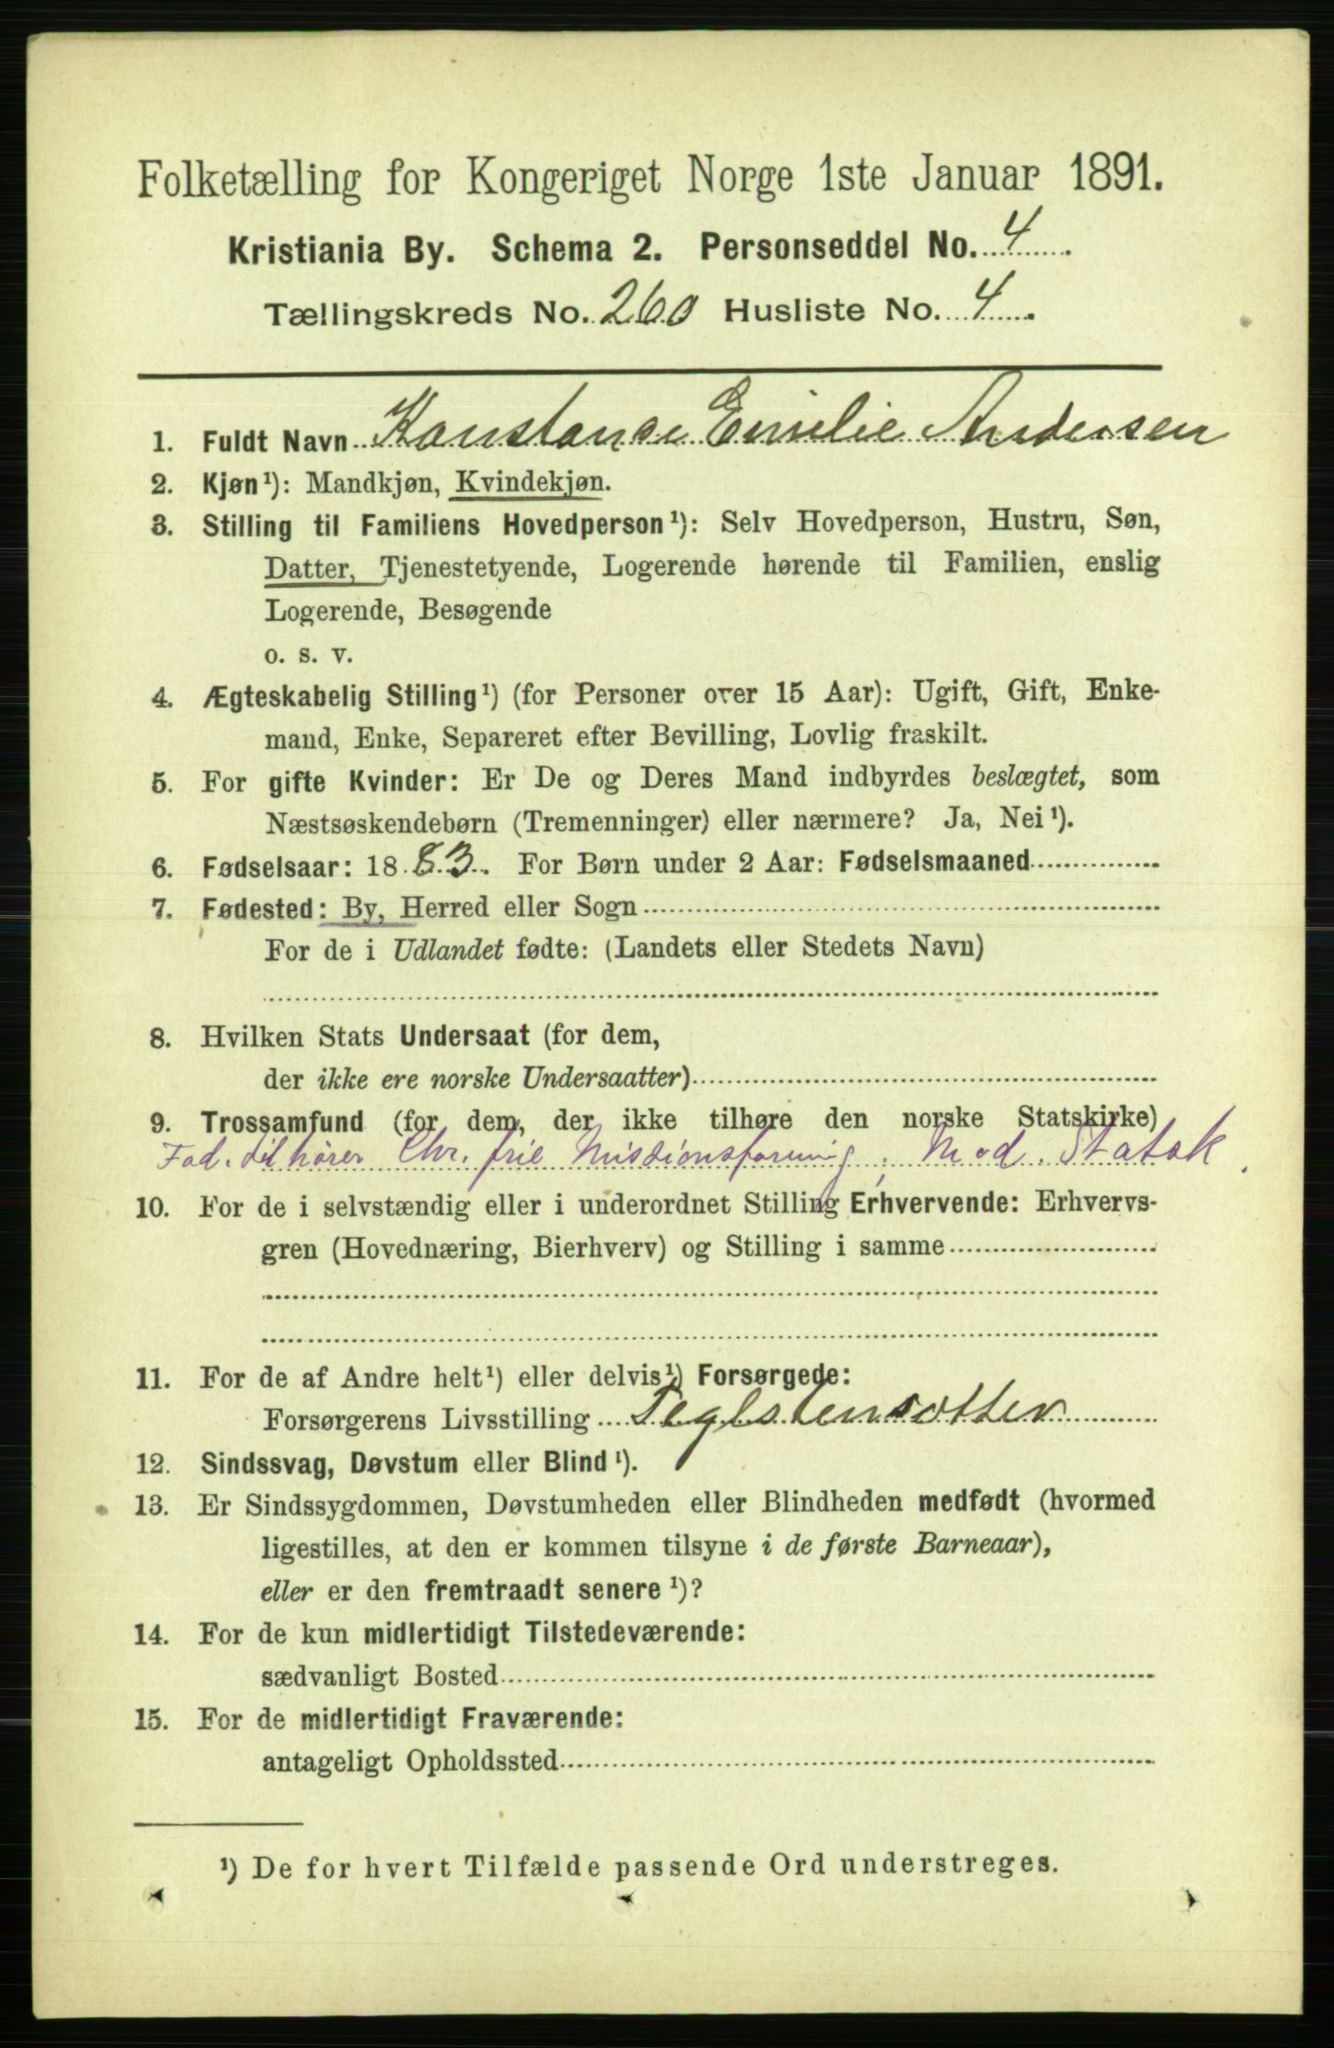 Folketælling for Kongeriget Norge 1ste Januar 1891.
Kristiania By. Schema 2. Personseddel No. 4
Tællingskreds No. 260 Husliste No. 4
1. Fuldt Navn Konstanse Emilie Andersen
2. Kjøn¹): Mandkjøn, Kvindekjøn.
3. Stilling til Familiens Hovedperson¹): Selv Hovedperson, Hustru, Søn,
Datter, Tjenestetyende, Logerende hørende til Familien, enslig
Logerende, Besøgende
o. s. v.
4. Ægteskabelig Stilling¹) (for Personer over 15 Aar): Ugift, Gift, Enke-
mand, Enke, Separeret efter Bevilling, Lovlig fraskilt.
5. For gifte Kvinder: Er De og Deres Mand indbyrdes beslægtet, som
Næstsøskendebørn (Tremenninger) eller nærmere? Ja, Nei¹).
6. Fødselsaar: 1883. For Børn under 2 Aar: Fødselsmaaned
7. Fødested: By, Herred eller Sogn
For de i Udlandet fødte: (Landets eller Stedets Navn)
8. Hvilken Stats Undersaat (for dem,
der ikke ere norske Undersaatter)
9. Trossamfund (for dem, der ikke tilhøre den norske Statskirke)
Fad. tilhører Chr. frie Missionsforening, Mod. Statsk.
10. For de i selvstændig eller i underordnet Stilling Erhvervende: Erhvervs-
gren (Hovednæring, Bierhverv) og Stilling i samme
11. For de af Andre helt¹) eller delvis¹) Forsørgede:
Forsørgerens Livsstilling Teglstensotter
12. Sindssvag, Døvstum eller Blind¹).
13. Er Sindssygdommen, Døvstumheden eller Blindheden medfødt (hvormed
ligestilles, at den er kommen tilsyne i de første Barneaar),
eller er den fremtraadt senere¹)?
14. For de kun midlertidigt Tilstedeværende:
sædvanligt Bosted
15. For de midlertidigt Fraværende:
antageligt Opholdssted
¹) De for hvert Tilfælde passende Ord understreges.